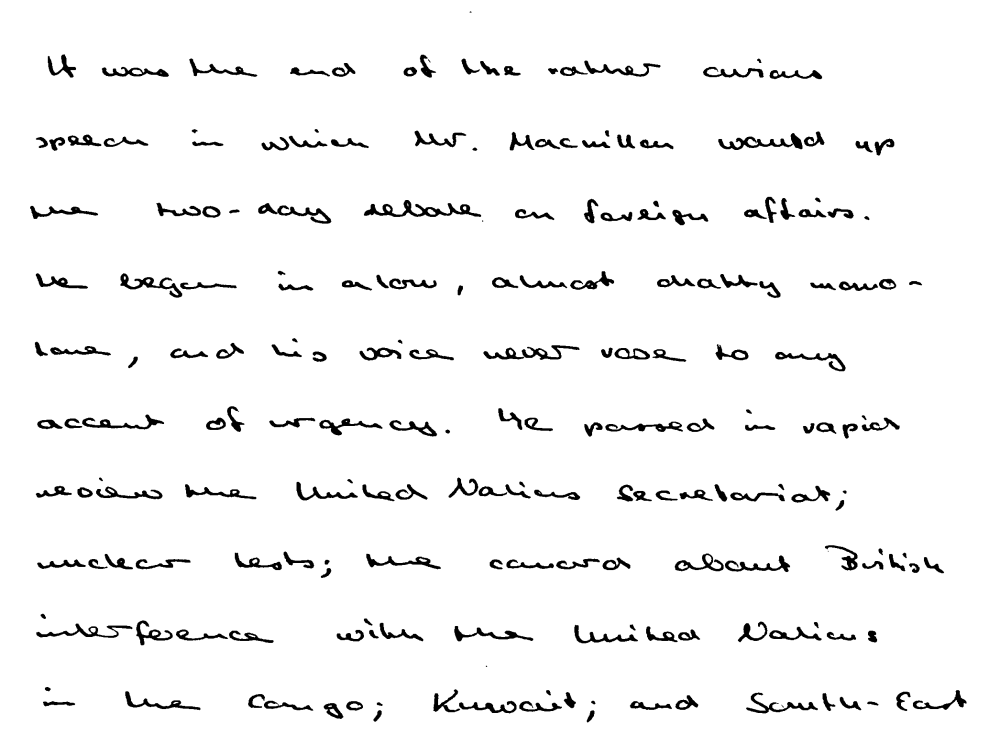 It was the end of the rather curious
speech in which Mr. Macmillan wound up
the two-day debate on foreign affairs.
He began in a low, almost chatty mono-
tone, and his voice never rose to any
accent of urgency. He passed in rapid
review the United Nations secretariat;
nuclear tests; the canard about British
interference with the United Nations
in the Congo; Kuwait; and South-East